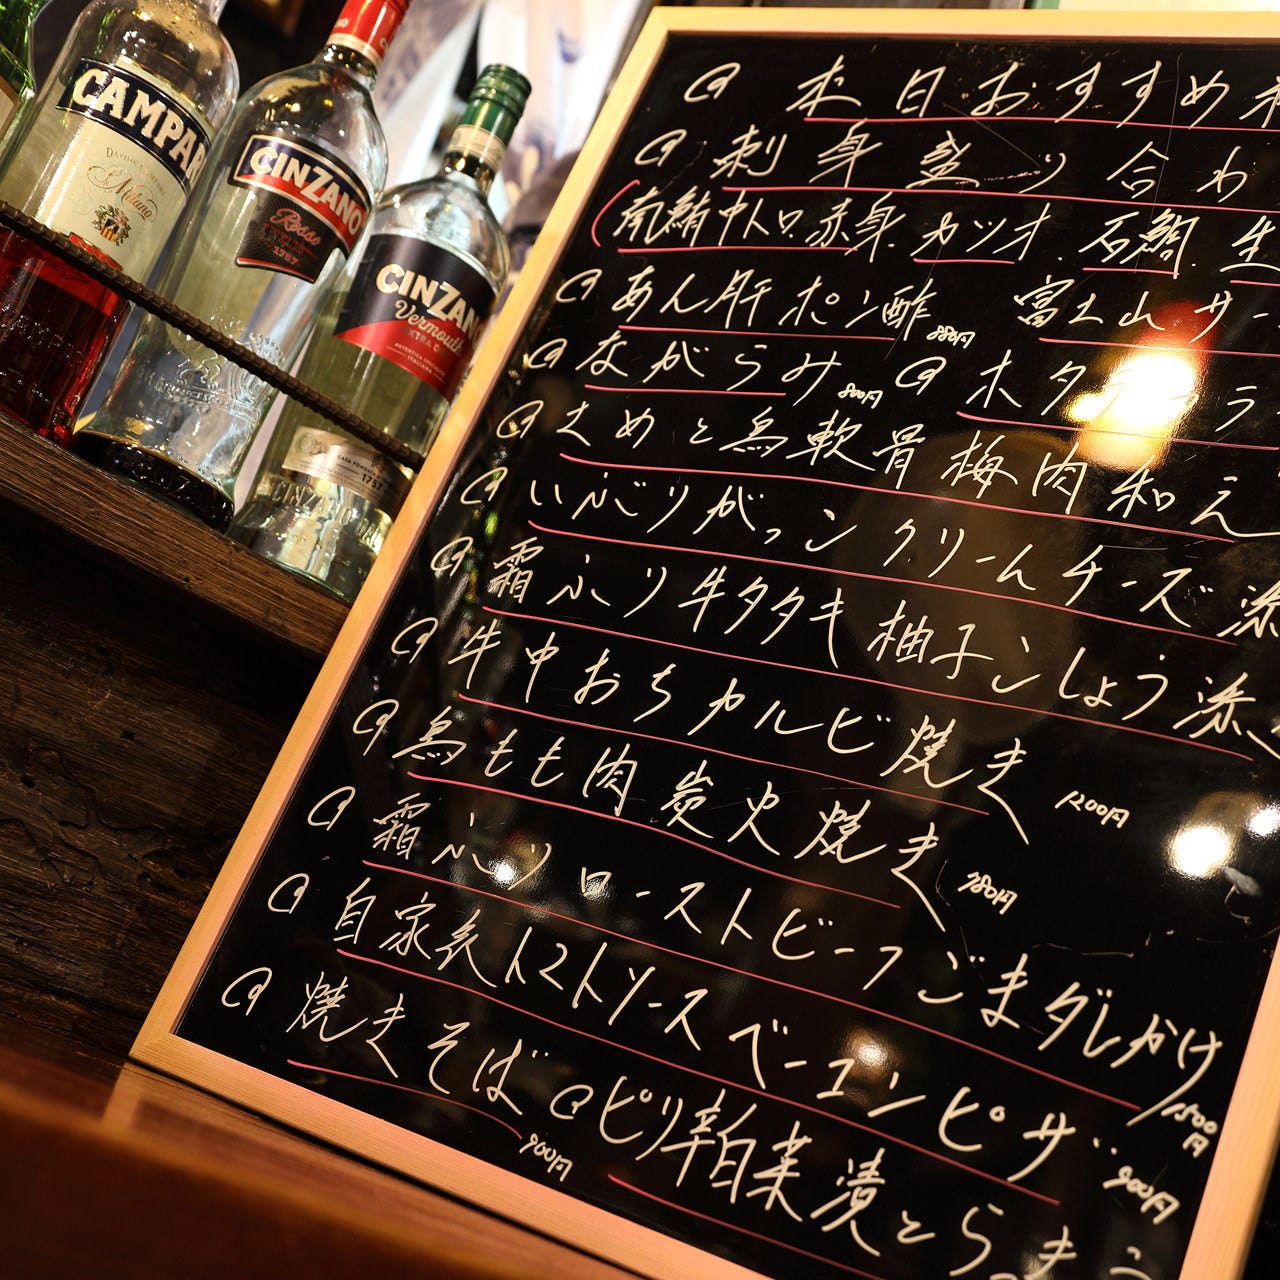 CAMPARI
DAVIDE CAMPARI
Milano
CINZANO
Rosso
1757
CINZANO
Vermouth
EXTRA DRY
1757
CINZANO
@ 本日おすすめ
@ 刺身盛り合わ
(南鮪中トロ.赤身.カツオ.石鯛.生
@ あん肝ポン酢 880円 富士山サー
@ ながらみ 800円 @ ホタテ
@ さめと鳥軟骨梅肉和え
@ いぶりがっコクリームチーズ添
@ 霜ふり牛タタキ柚子こしょう添え
@ 牛中おちカルビ焼き 1200円
@ 鳥もも肉炭火焼き 980円
@ 霜ふりローストビーフごまダレかけ 1500円
@ 自家製トマトソースベーコンピザ 900円
@ 焼きそば 900円 @ ピリ辛白菜漬とらまう